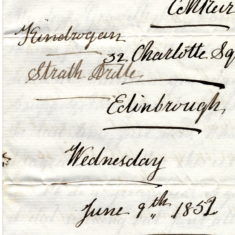 Kindrogan
32 Charlotte Sq
Strath Ardle
Edinbrough,
Wednesday
June 9th 1852